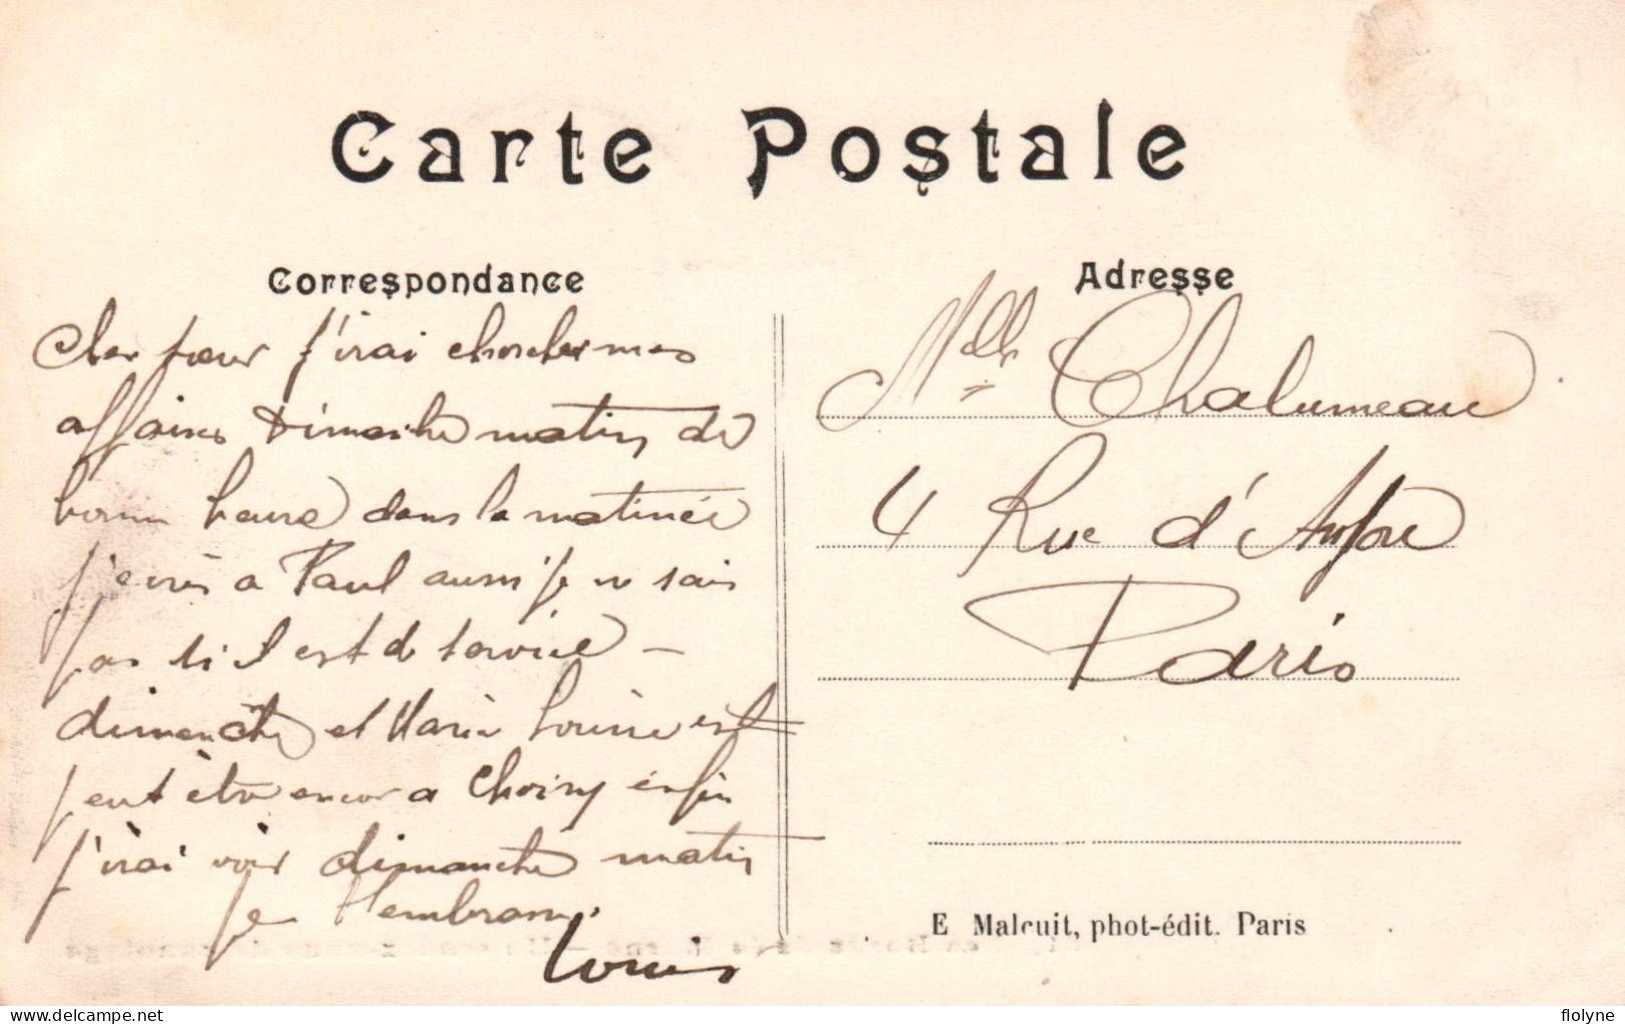 Carte Postale
Correspondance
Adresse
Cher sœur j'irai chercher mes
affaires Dimanche matin de
bonne heure dans la matinée
j'ecris a Paul aussi je ne sais
pas si il est de service –
dimanche et Marie Louise est
peut être encor a Choisy enfin
j'irai voir dimanche matin
Je t'embrasse
Louis
Melle Chalumeau
4 Rue d'
Paris
E Malcuit, phot-édit. Paris
delcampe.net
flolyne